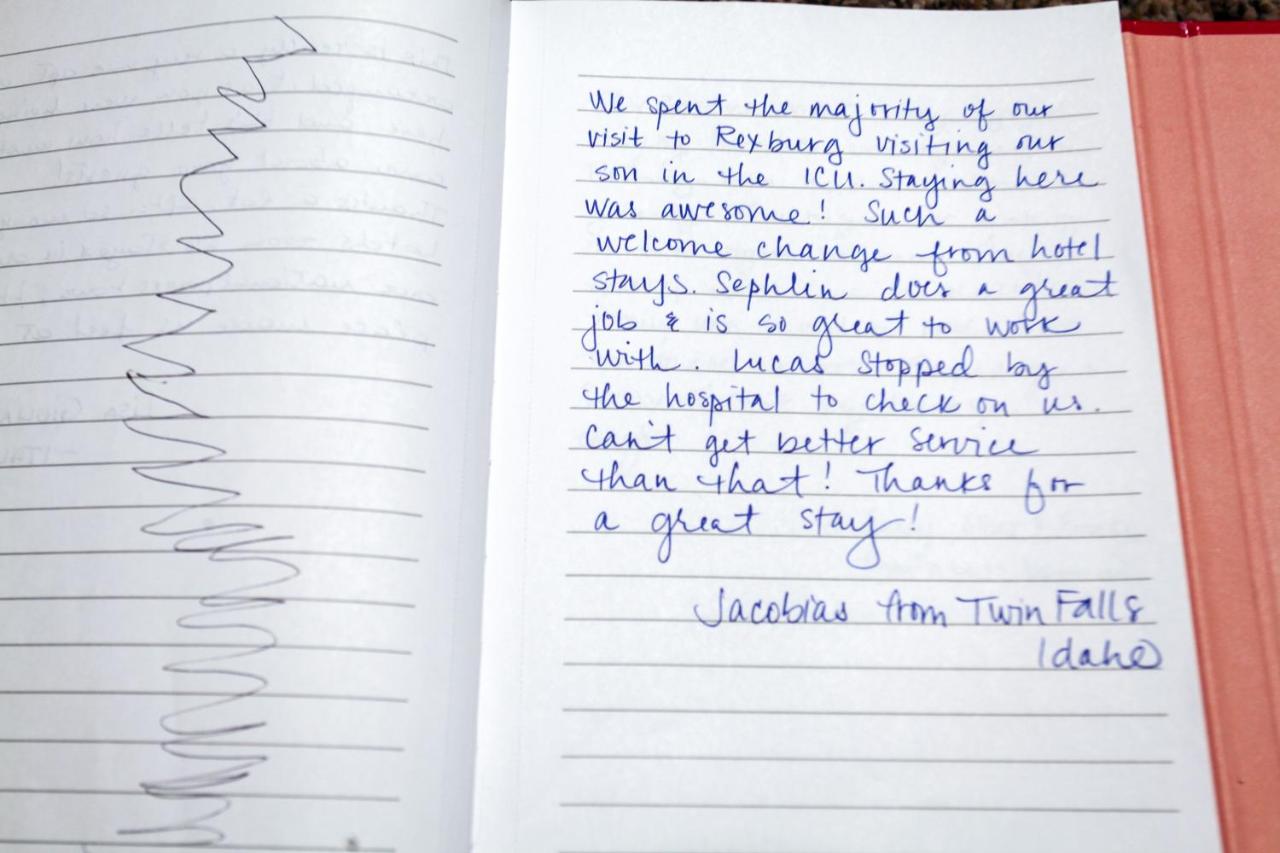 We spent the majority of our
visit to Rexburg visiting our
son in the ICU. Staying here
was awesome! Such a
welcome change from hotel
stays. Sephlin does a great
job & is so great to work
with. Lucas stopped by
the hospital to check on us.
Can't get better service
than that! Thanks for
a great stay!
Jacobias from Twin Falls
Idaho